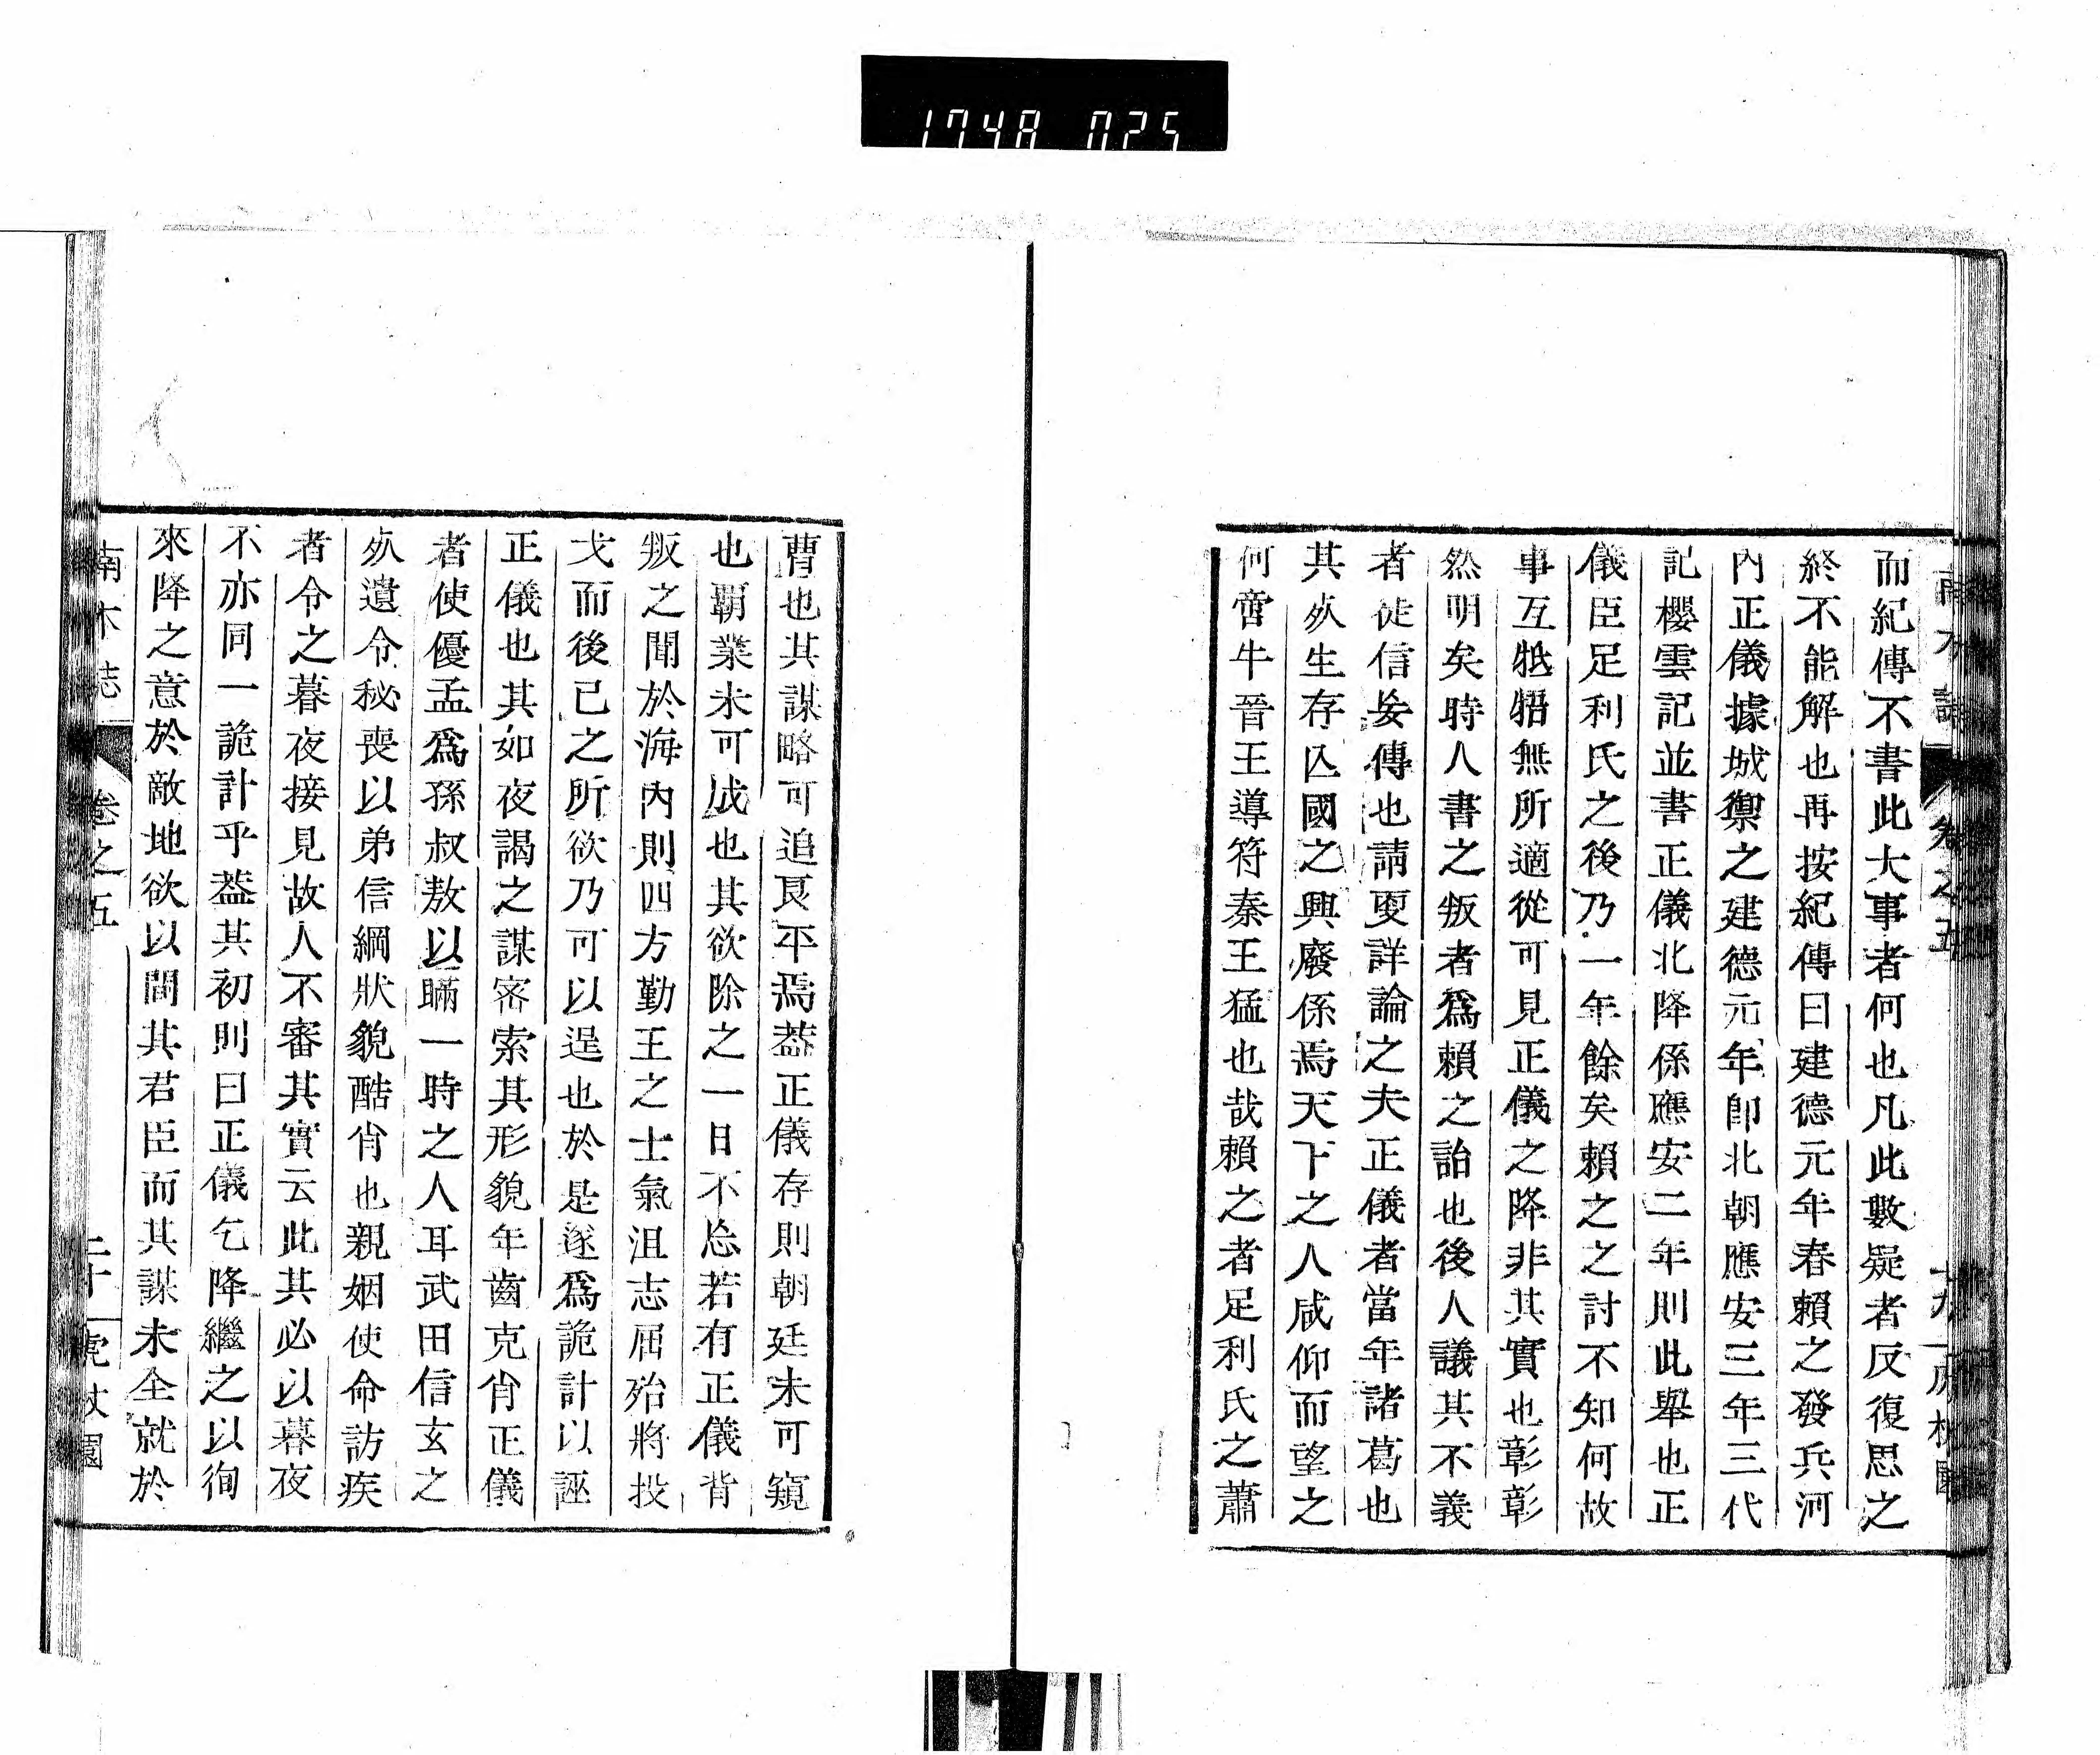 1748 025
南木誌 卷之五 十九
而紀傳不書此大事者何也凡此數疑者反復思之
終不能解也再按紀傳曰建德元年春賴之發兵河
內正儀據城禦之建德元年卽北朝應安三年三代
記櫻雲記並書正儀北降係應安二年則此舉也正
儀臣足利氏之後乃一年餘矣賴之之討不知何故
事互牴牾無所適從可見正儀之降非其實也彰彰
然明矣時人書之叛者爲賴之詒也後人議其不義
者徒信妄傳也請更詳論之夫正儀者當年諸葛也
其㱕生存亾國之興廢係焉天下之人咸仰而望之
何啻牛晉王導符秦王猛也哉賴之者足利氏之蕭
曹也其謀略可追良平焉葢正儀存則朝廷未可窺
也霸業未可成也其欲除之一日不忘若有正儀背
叛之聞於海內則四方勤王之士氣沮志屈殆將投
戈而後已之所欲乃可以逞也於是遂爲詭計以誣
正儀也其如夜謁之謀密索其形貌年齒克肖正儀
者使優孟爲孫叔敖以瞞一時之人耳武田信玄之
㱕遺令秘喪以弟信綱狀貌酷肖也親姻使命訪疾
者令之暮夜接見故人不審其實云此其必以暮夜
不亦同一詭計乎葢其初則曰正儀乞降繼之以徇
來降之意於敵地欲以間其君臣而其謀未全就於
南木誌 卷之五 二十